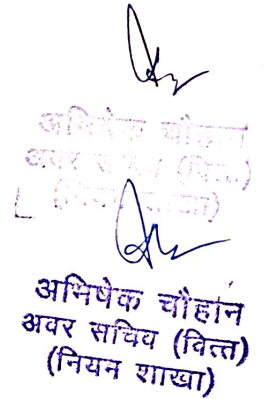 अभिषेक चौहान
अवर सचिव (वित्त)
अभिषेक चौहान
अवर सचिव (वित्त)
(नियन शाखा)